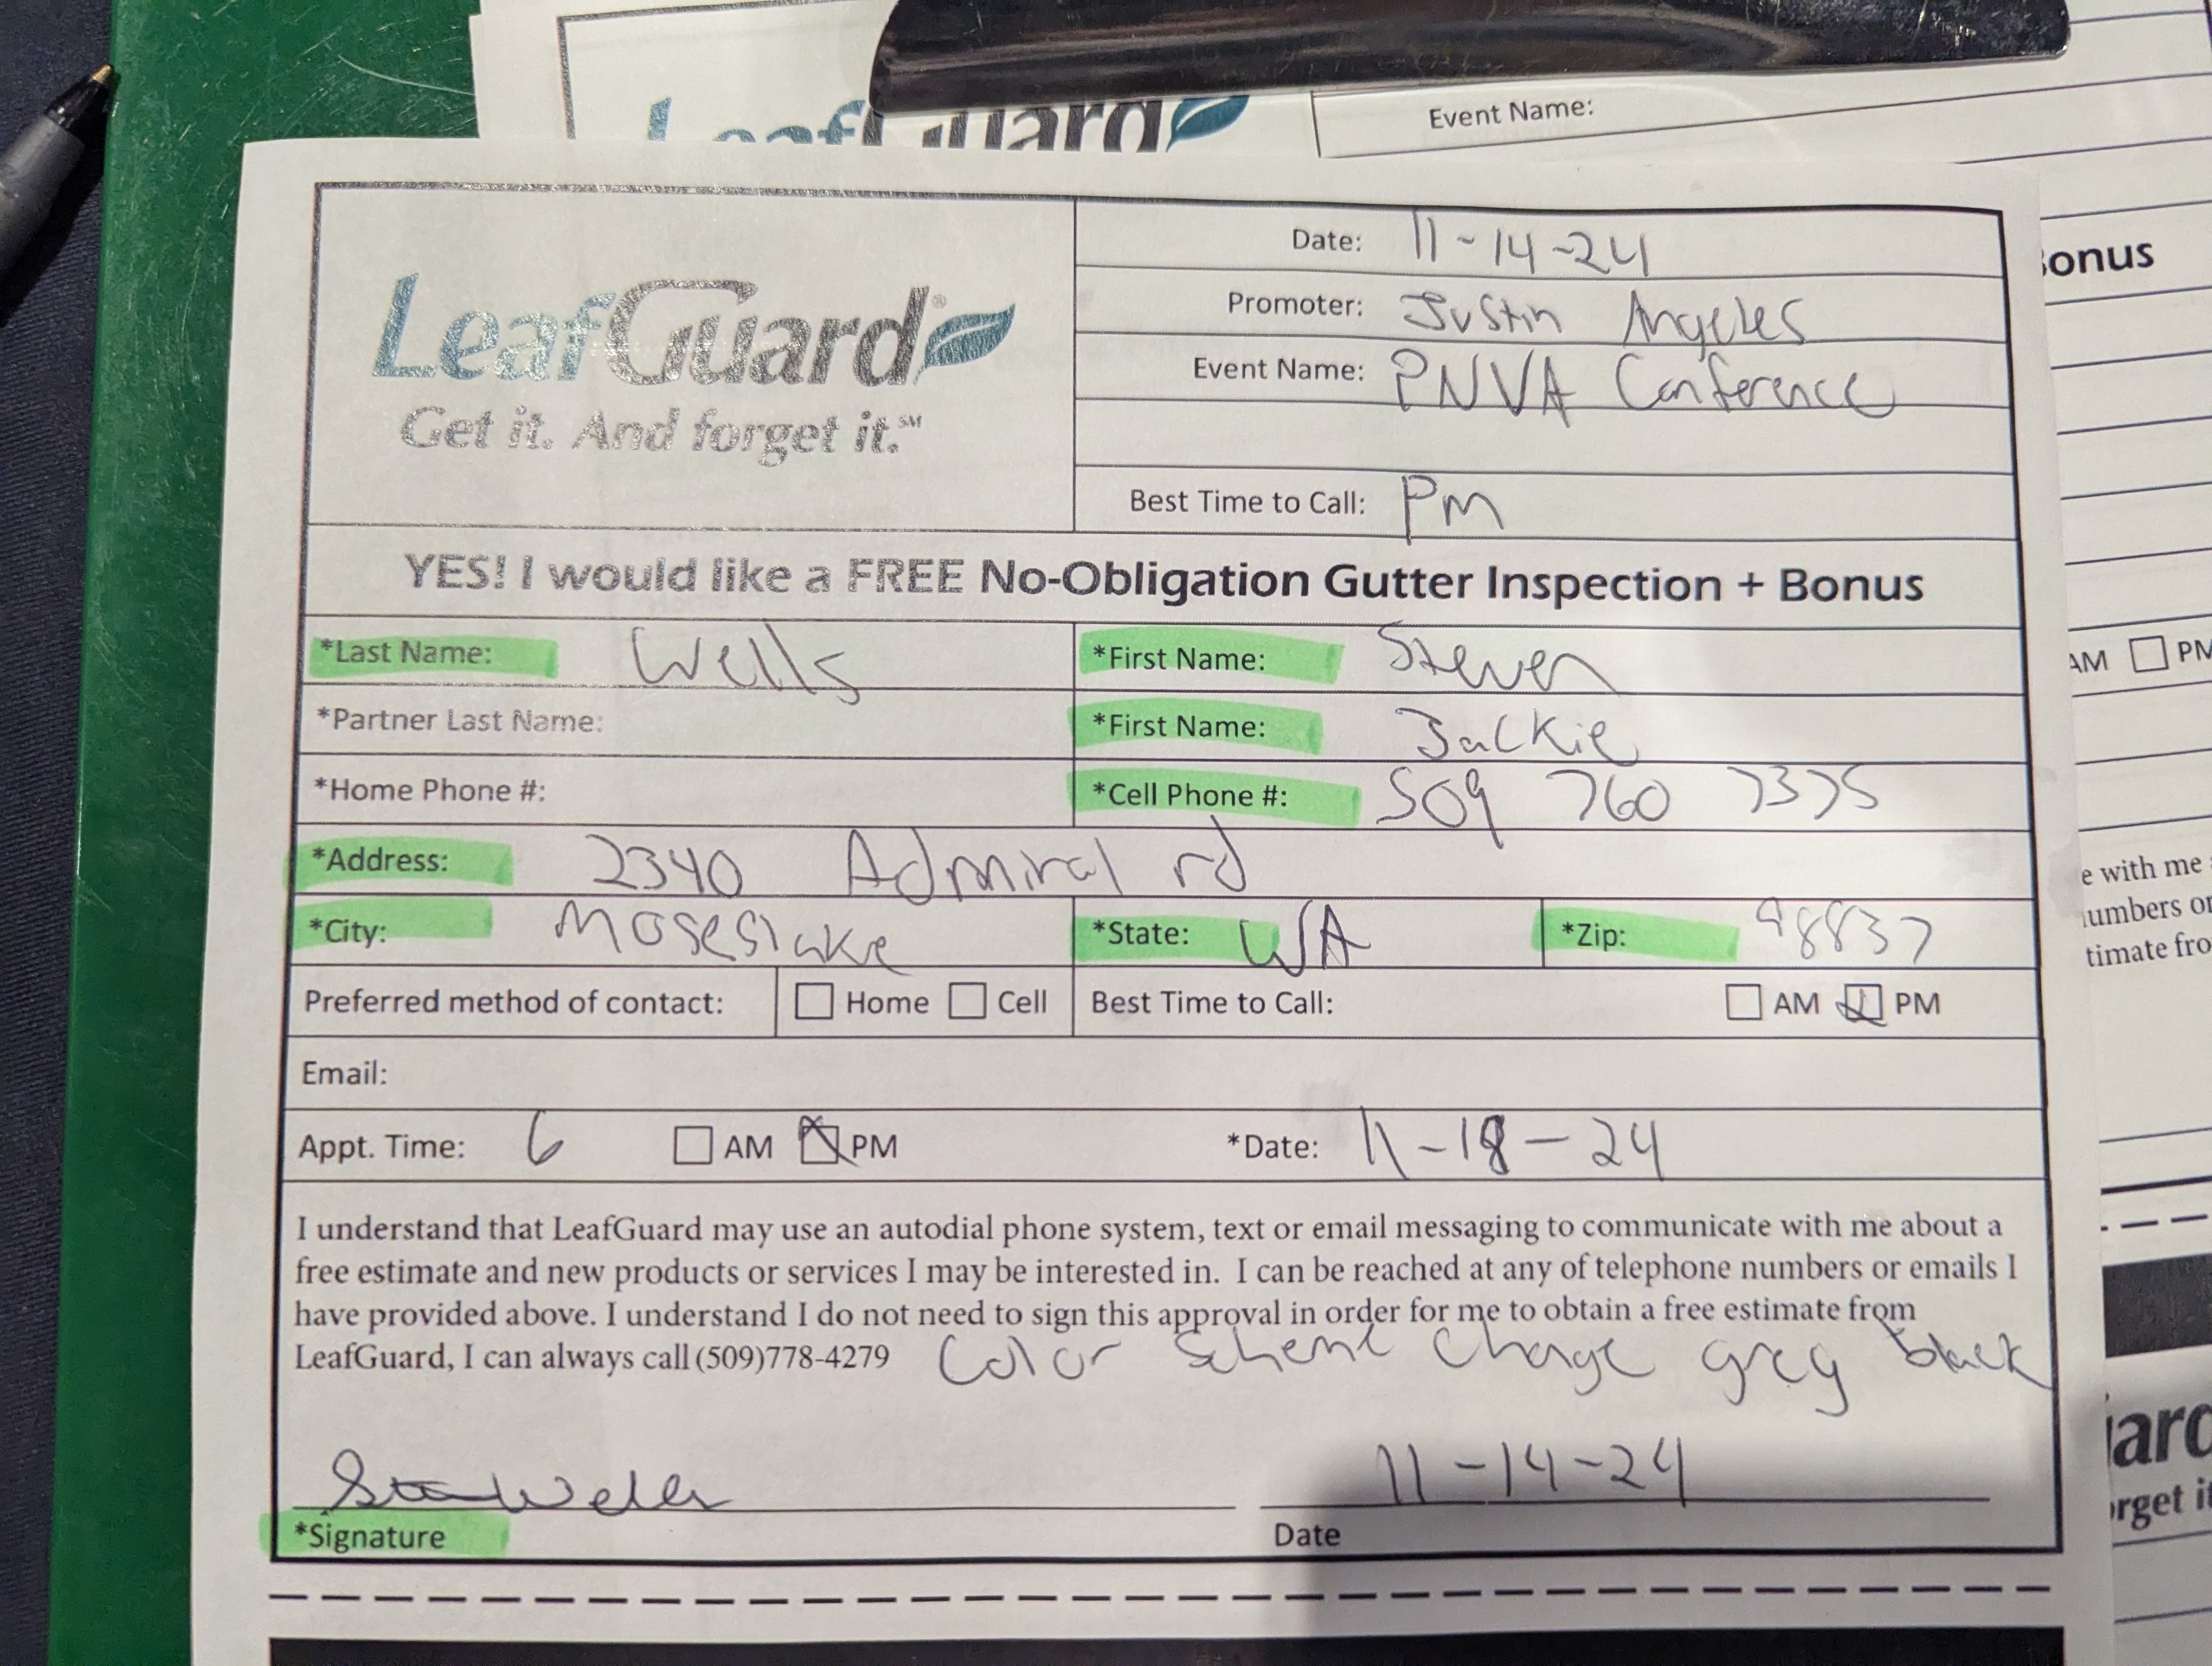 LeafGuard
Event Name:
LeafGuard®
Get it. And forget it.℠
Date: 11-14-24
Promoter: Justin Angeles
Event Name: PNVA Conference
Best Time to Call: Pm
YES! I would like a FREE No-Obligation Gutter Inspection + Bonus
*Last Name: Wells *First Name: Steven
*Partner Last Name: *First Name: Jackie
*Home Phone #: *Cell Phone #: 509 760 7375
*Address: 2340 Admiral rd
*City: Moseslake *State: WA *Zip: 98837
Preferred method of contact: Home Cell Best Time to Call: AM PM
Email:
Appt. Time: 6 AM PM *Date: 11-18-24
I understand that LeafGuard may use an autodial phone system, text or email messaging to communicate with me about a
free estimate and new products or services I may be interested in. I can be reached at any of telephone numbers or emails I
have provided above. I understand I do not need to sign this approval in order for me to obtain a free estimate from
LeafGuard, I can always call (509)778-4279 Color scheme change grey black
Wells 11-14-24
*Signature Date
onus
AM PM
e with me
umbers or
timate fro
ard
rget it